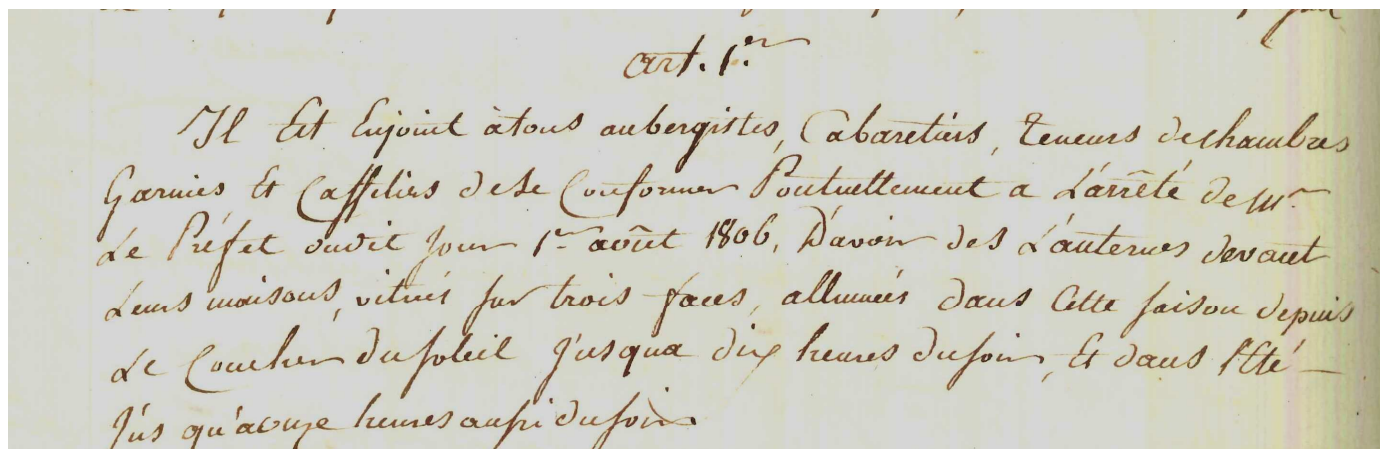 art. 1er
Il Est Enjoint à tous aubergistes, Cabaretiers, teneurs de chambres
Garnies Et Caffetiers de se Conformer Pontuellement a L'arrêté de Mr
Le Préfet dudit jour 1er août 1806, D'avoir des L'anternes devant
Leurs maisons, vitrées sur trois faces, allumées dans Cette saison depuis
Le Coucher du soleil J'usqua dix heures du soir, Et dans l'Eté
J'us qu'a onze heures aussi du soir